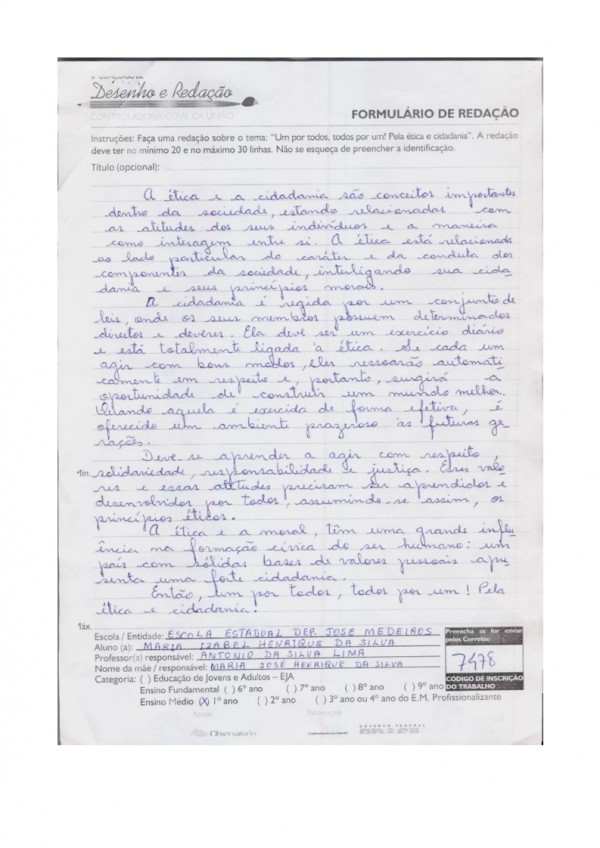 Desenho e Redação
CONTROLADORIA-GERAL DA UNIÃO
FORMULÁRIO DE REDAÇÃO
Instruções: Faça uma redação sobre o tema: "Um por todos, todos por um! Pela ética e cidadania". A redação
deve ter no mínimo 20 e no máximo 30 linhas. Não se esqueça de preencher a identificação.
Título (opcional):
A ética e a cidadania são conceitos importantes
dentro da sociedade, estando relacionadas com
as atitudes dos seus indivíduos e a maneira
como interagem entre si. A ética está relacionada
ao lado particular do caráter e da conduta dos
componentes da sociedade, interligando sua cida
dania e seus princípios morais.
A cidadania é regida por um conjunto de
leis, onde os seus membros possuem determinados
direitos e deveres. Ela deve ser um exercício diário
e está totalmente ligada à ética. Se cada um
agir com bons modos, eles ressoarão automati
camente em respeito e, portanto, surgirá a
oportunidade de construir um mundo melhor.
Quando aquela é exercida de forma efetiva, é
oferecido um ambiente prazeroso às futuras ge
rações.
Deve-se aprender a agir com respeito,
solidariedade, responsabilidade e justiça. Esses valo
res e essas atitudes precisam ser aprendidos e
desenvolvidos por todos, assumindo-se assim, os
princípios éticos.
A ética e a moral, têm uma grande influ
ência na formação cívica do ser humano: um
país com sólidas bases de valores pessoais apre
senta uma forte cidadania.
Então, um por todos, todos por um! Pela
ética e cidadania!
Escola / Entidade: ESCOLA ESTADUAL DEP. JOSÉ MEDEIROS
Aluno (a): MARIA IZABEL HENRIQUE DA SILVA
Professor(a) responsável: ANTONIO DA SILVA LIMA
Nome da mãe / responsável: MARIA JOSÉ HENRIQUE DA SILVA
Preencha se for enviar
pelos Correios:
7478
CÓDIGO DE INSCRIÇÃO
DO TRABALHO
Categoria: ( ) Educação de Jovens e Adultos – EJA
Ensino Fundamental ( ) 6º ano ( ) 7º ano ( ) 8º ano ( ) 9º ano
Ensino Médio (X) 1º ano ( ) 2º ano ( ) 3º ano ou 4º ano do E.M. Profissionalizante
Observatório
GOVERNO FEDERAL
BRASIL